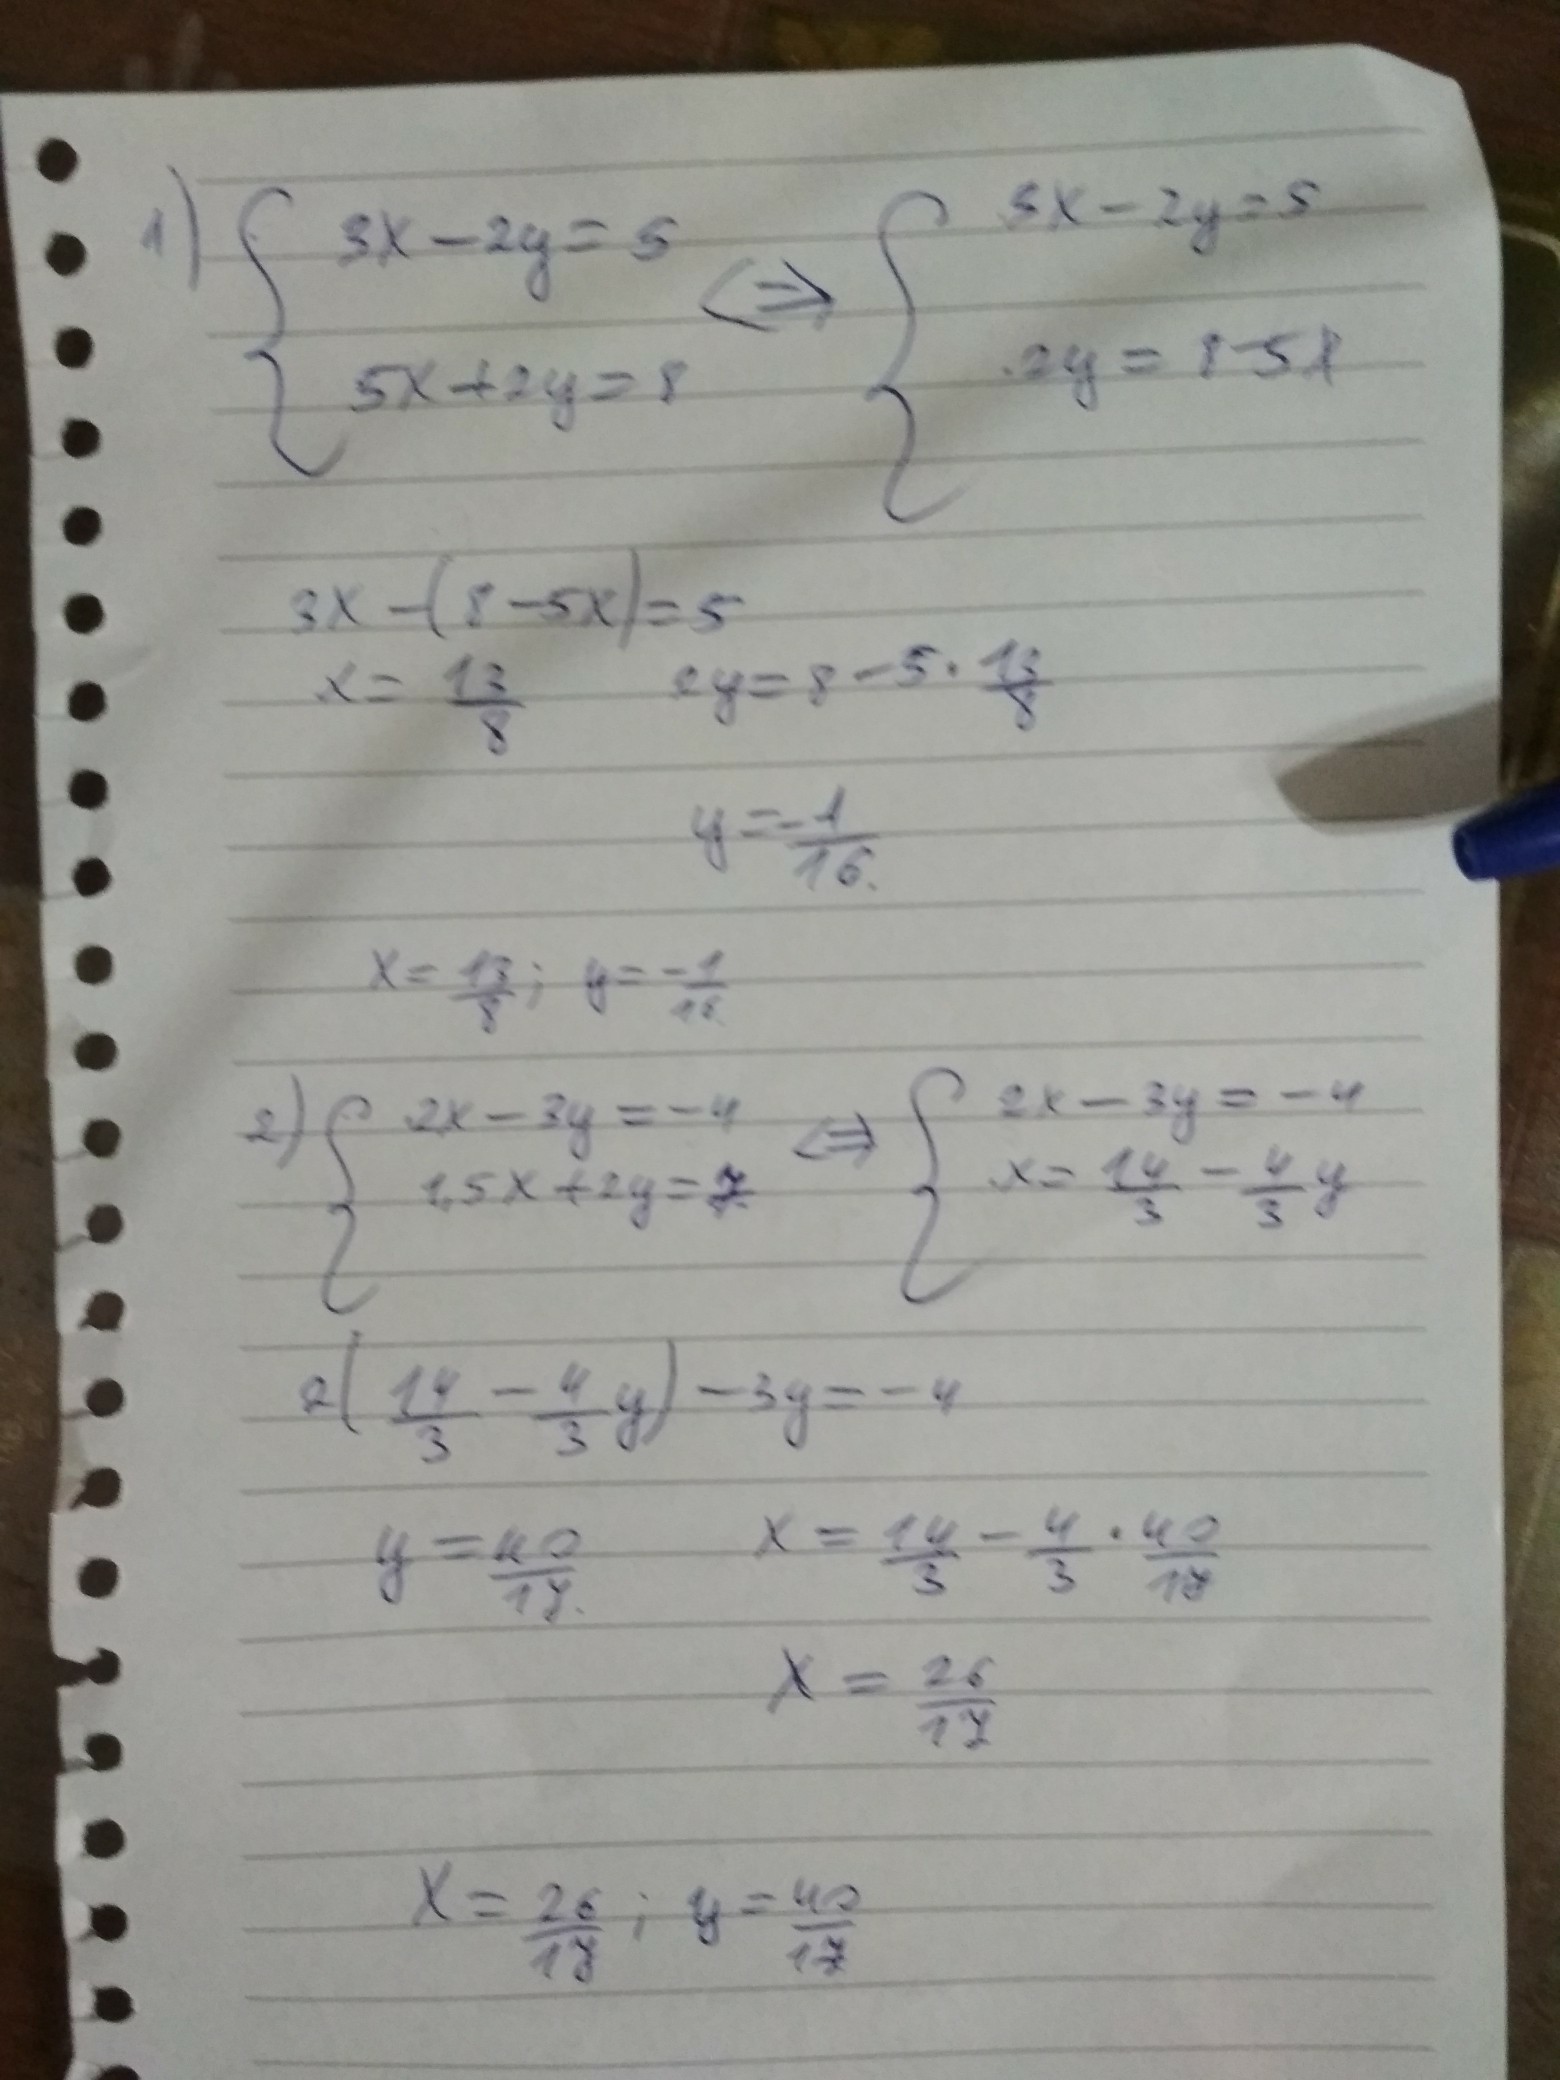 1) { 3x - 2y = 5 <=> { 3x - 2y = 5
5x + 2y = 8 2y = 8 - 5x
3x - (8 - 5x) = 5
x = 13/8 2y = 8 - 5 · 13/8
y = -1/16
x = 13/8 ; y = -1/16
2) { 2x - 3y = -4 <=> { 2x - 3y = -4
1,5x + 2y = 7 x = 14/3 - 4/3 y
2(14/3 - 4/3 y) - 3y = -4
y = 40/17 x = 14/3 - 4/3 · 40/17
x = 26/17
x = 26/17 ; y = 40/17